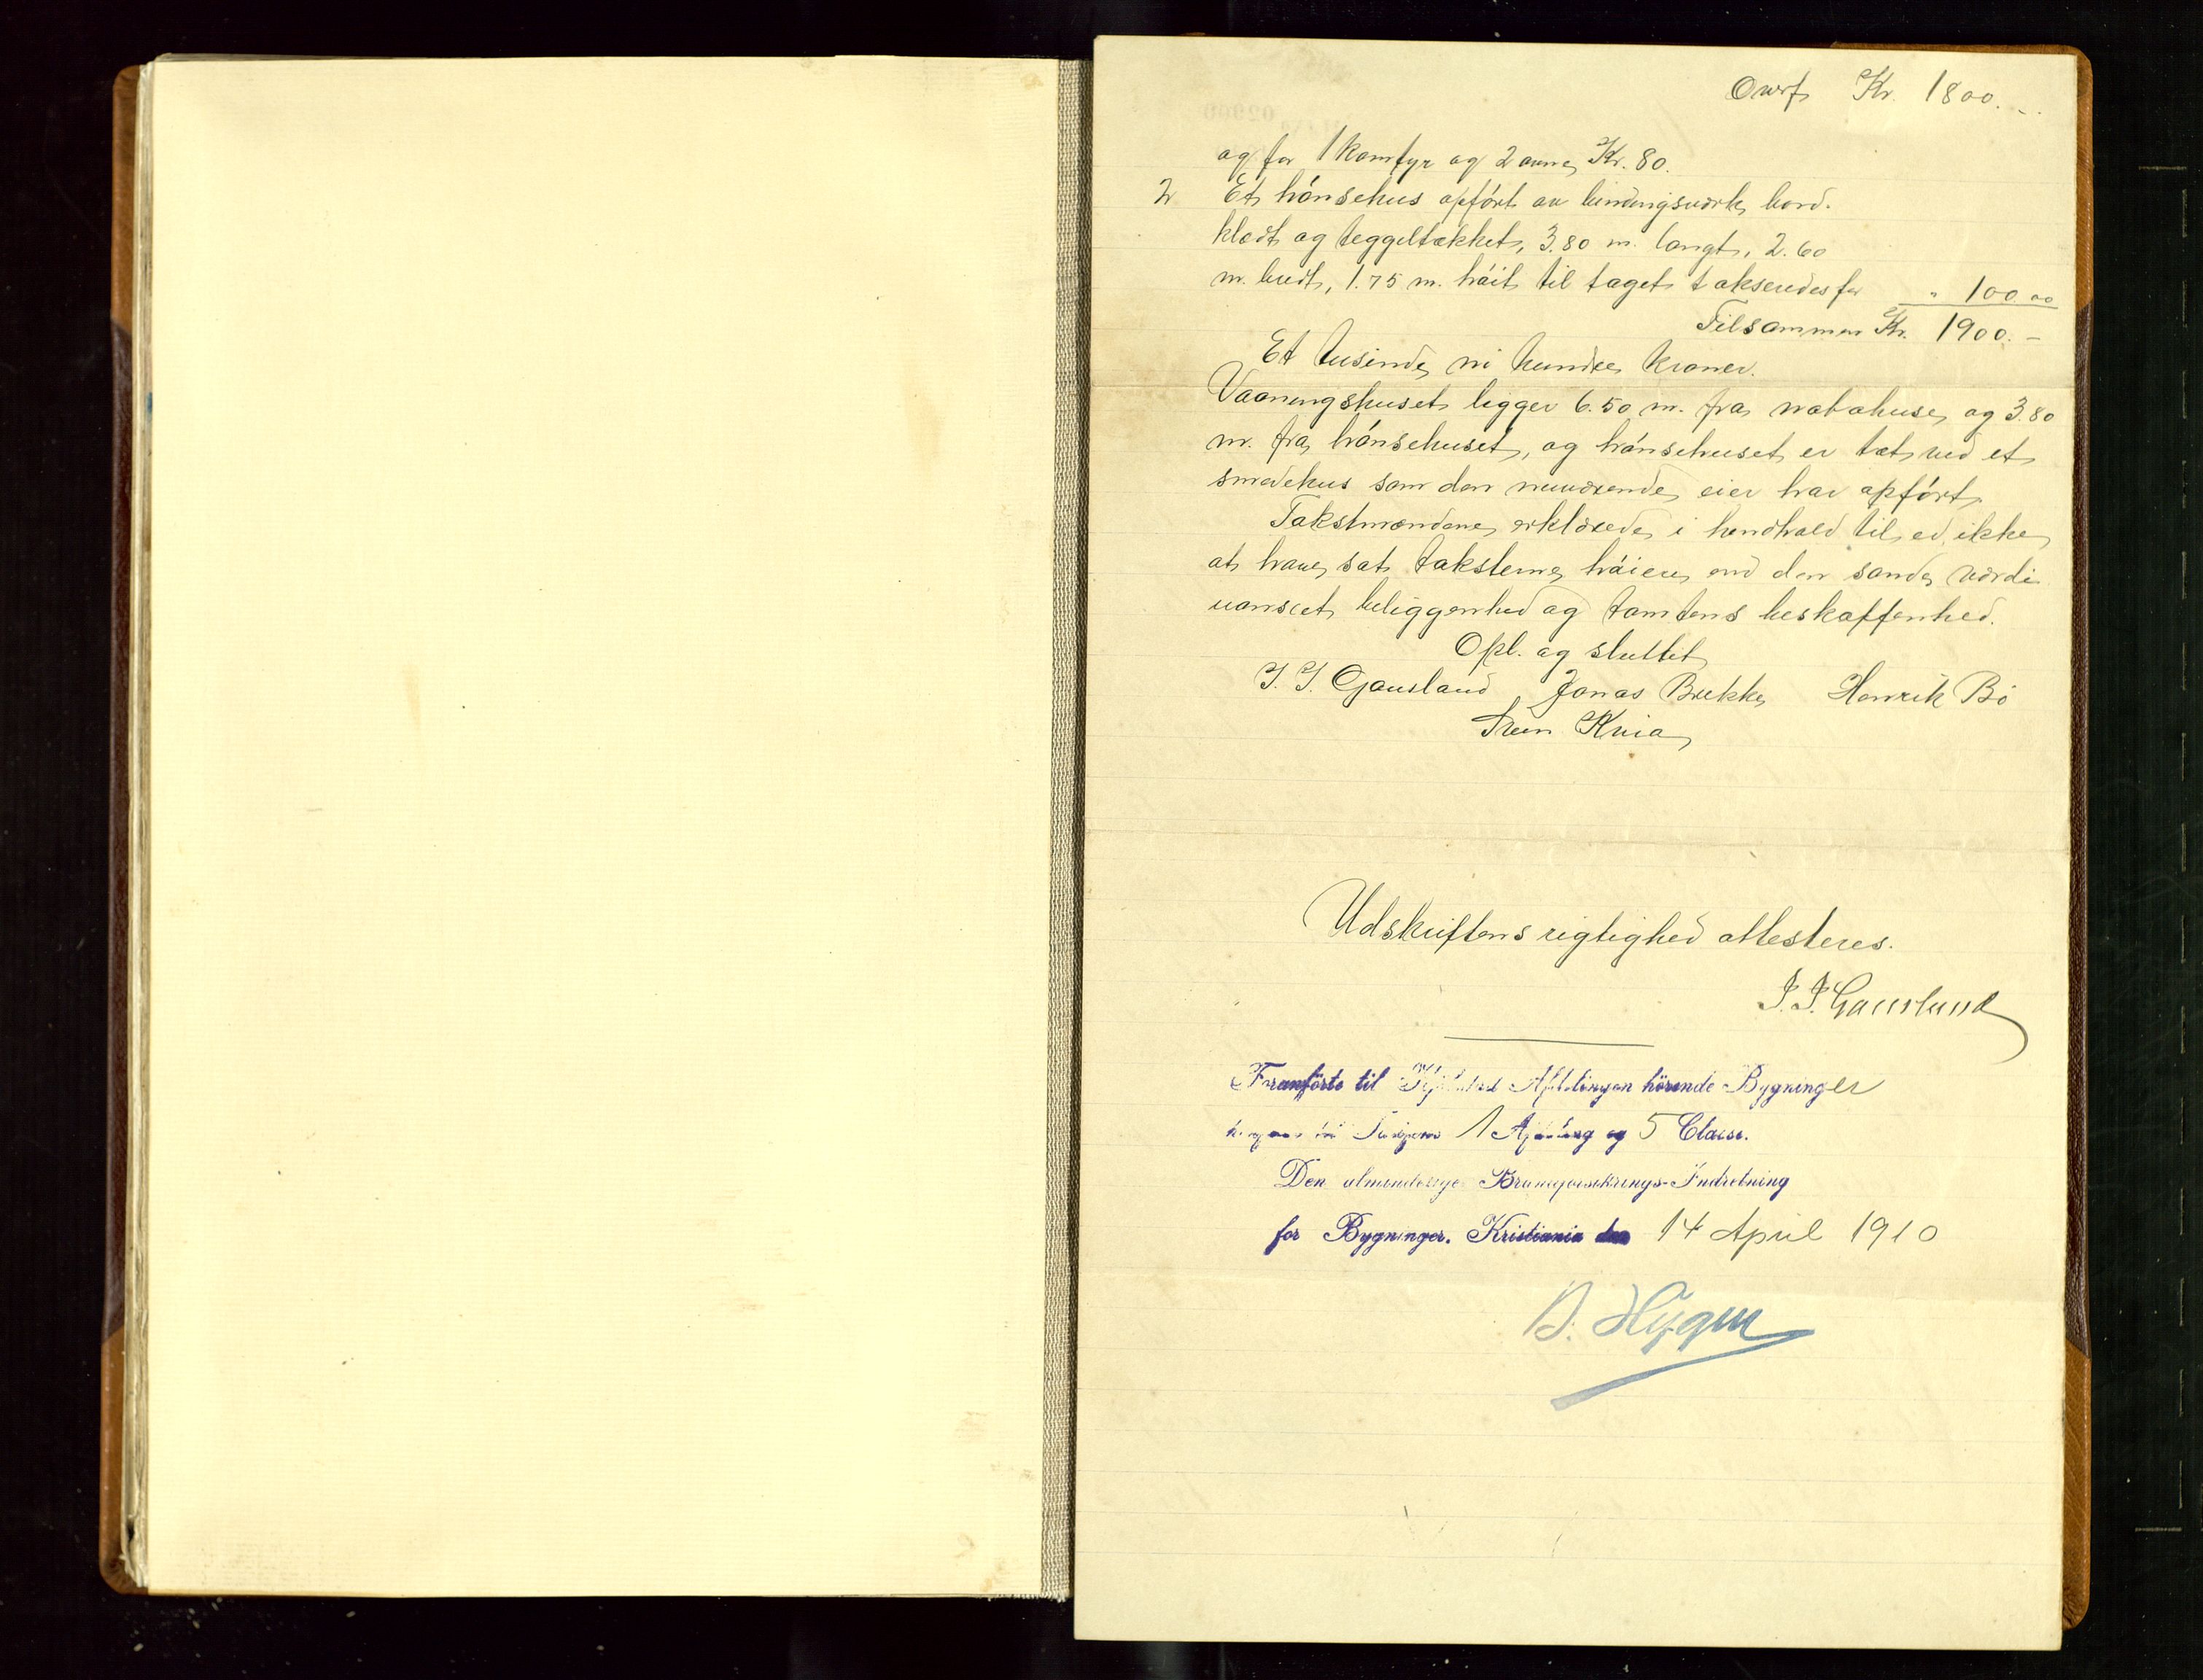 Overf. Kr. 1800. -
og for 1 komfyr og 2 ovne, Kr. 80.
2 Et hönsehus opfört av bindingsværk, bord-
klædt og teggeltækket, 3.80 m. langt, 2.60
m. bredt, 1.75 m. höit til taget takseredes for " 100 00
Tilsammen Kr. 1900. -
Et tusinde, ni hundre kroner.
Vaaningshuset ligger 6.50 m. fra nabohuse, og 3.80
m. fra hönsehuset, og hönsehuset er tæt ved et
smedehus som den nuværende eier har opfört.
Takstmændene erklærede i henhold til ed, ikke
at have sat taksterne höiere end den sande værdi
uanseet beliggenhed og tomtens beskaffenhed.
Opl. og sluttet
J. J. Gausland Jonas Brekke Henrik Bö
Sven Kvia
Udskriftens rigtighed attesteres.
J. J. Gausland
Foranförte til Afdelingen hörende Bygninger
1 Afdeling og 5 Classe.
Den almindelige Brandforsikrings-Indretning
for Bygninger. Kristiania den 14 April 1910